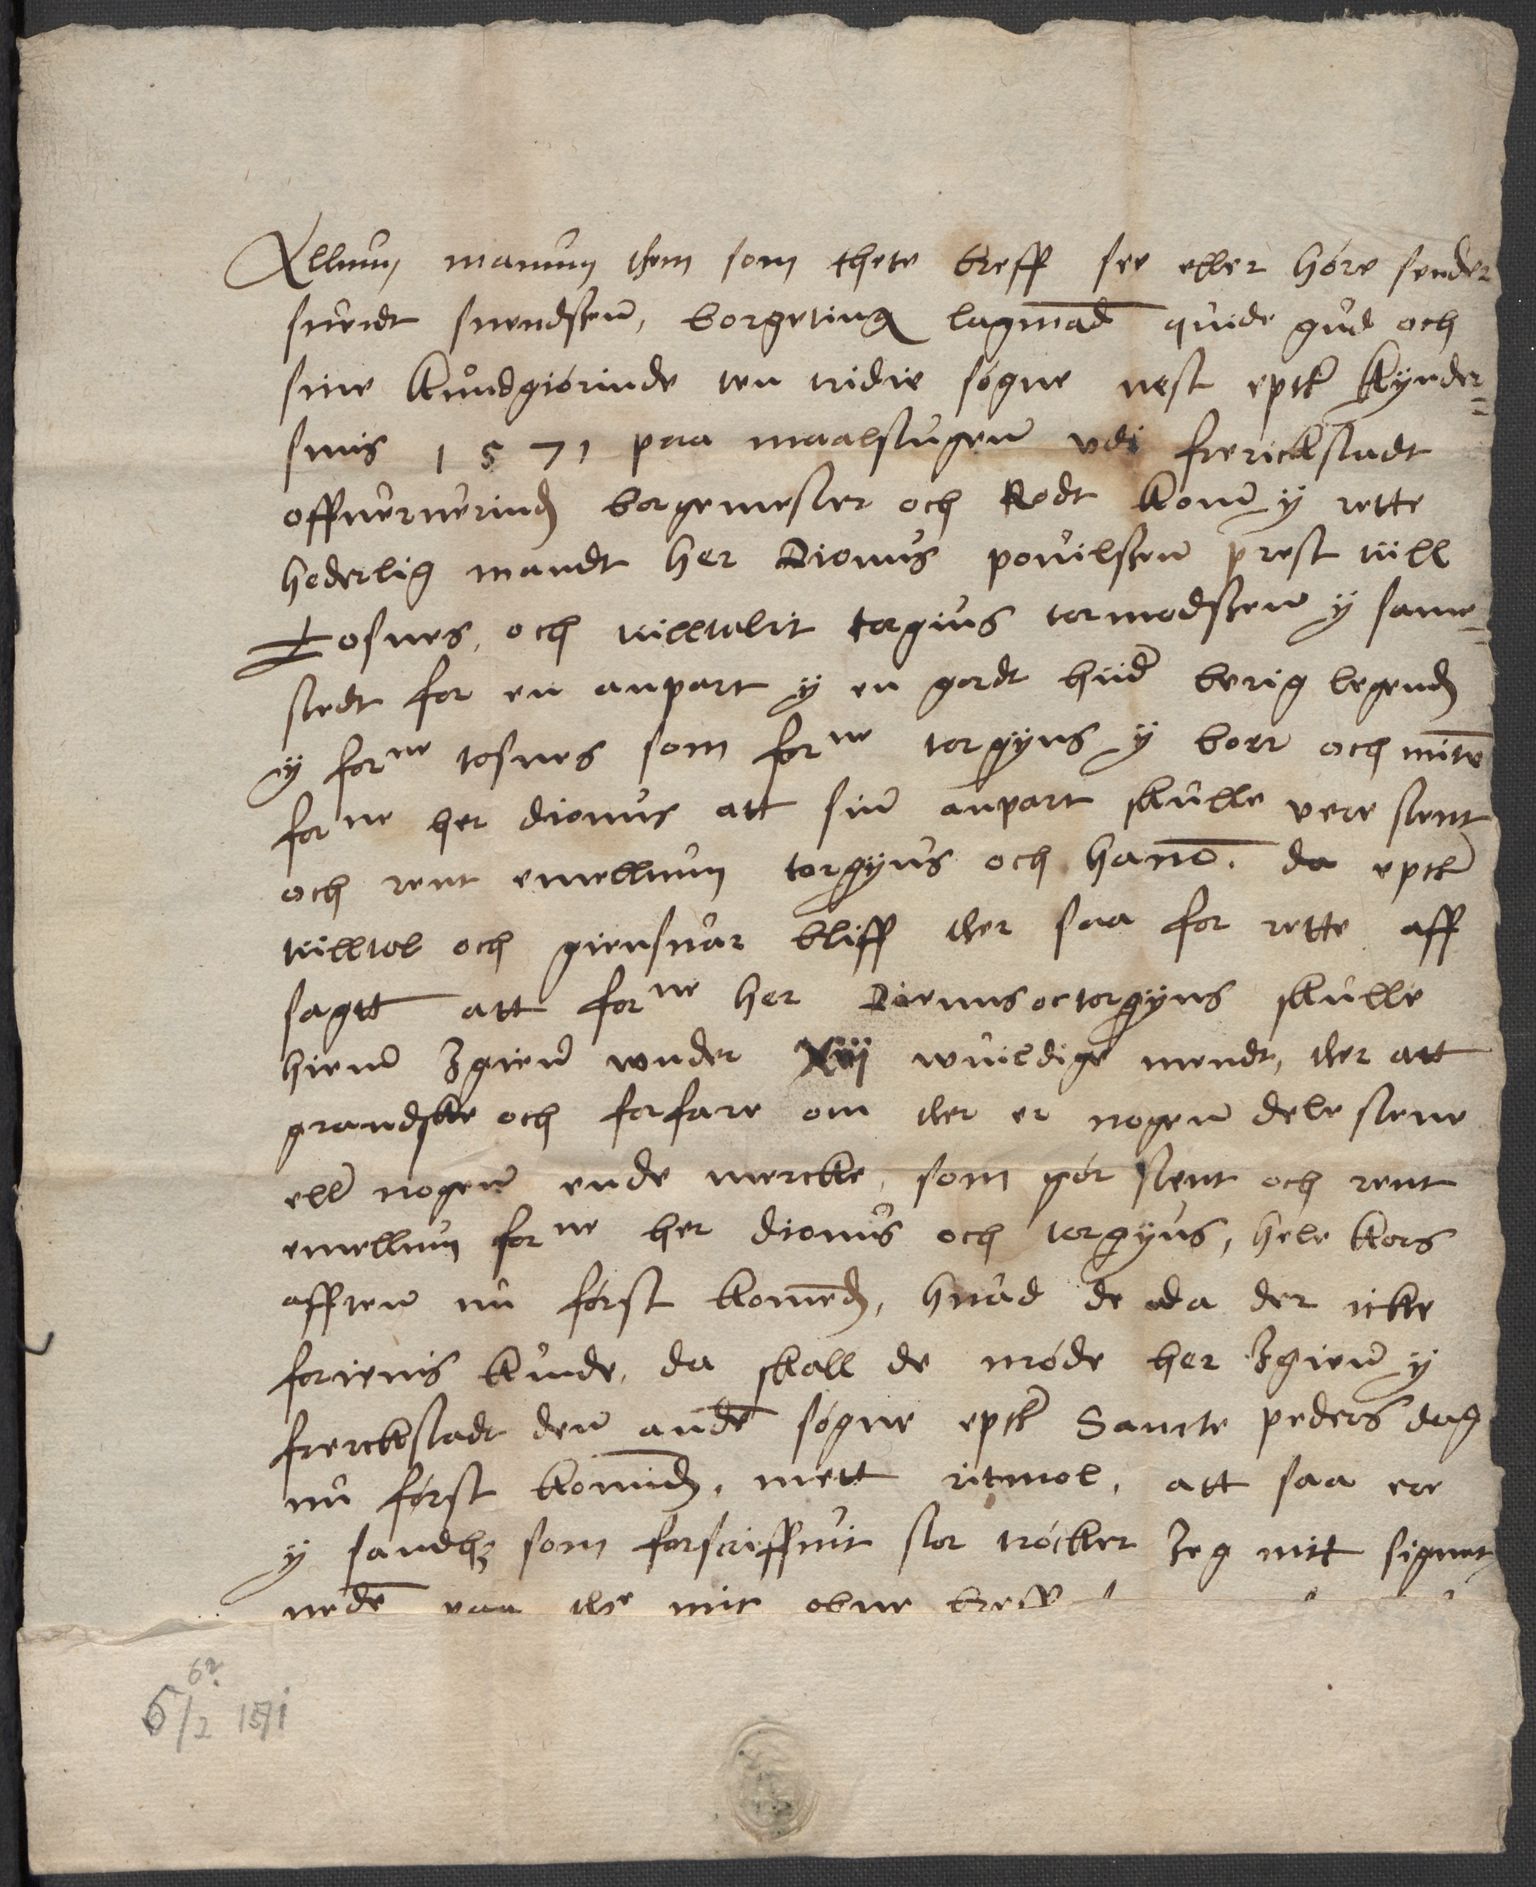 Allum mannum them som thette breff see eller høre sender
suendt suendssen, borgeting lagmand quide gud och
sine kundgiørinde ten tridie søgne nest epter kynder=
smis 1571 paa maalstugen vdi frerickstadt
offuerverinds borgemester och Rodt kom y rette
hederlig mandt her Dionus pouilssen prest till
Tosnes, och tilltalit torgius tormodssen y same=
stedt for en anpart y en gordt hiid berig legends
y forne tosnes som forne torgyus y boer och miente
forne her dionus att sin anpart skulle vere stent
och rent emellum torgyus och hano. da epter
tilltal och giensuar bliff ther saa for rette aff
sagtt att forne her Dionus oc torgyus skulle
hiem Igien vnder xij wuildige mendt, ther att
grandske och forfare om ther er nogen dele stene
eller nogen ende mercke, som gør stent och rent
emellum forne her dionus och torgyus, hele kors
afften nu først komends, huad de da der icke
forienis kunde, da skall de møde her Igien y
frerckstadt den anden søgne epter Sancte peders dag
nu først komends, mett ritmol, att saa ere
y sandhed som forscriffuit stor trøcker Jeg mitt signet
neden paa the mit obne breff
62
5/2 1571